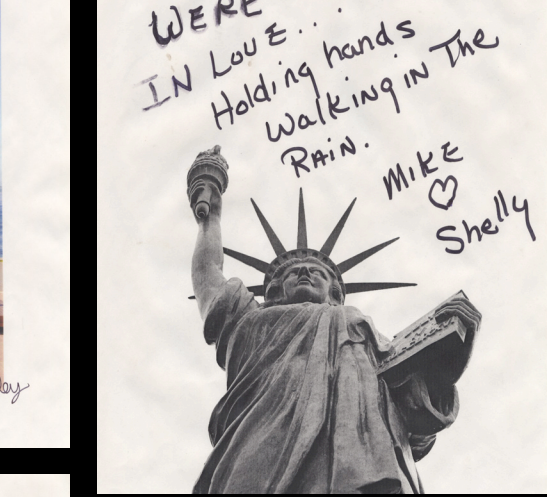 WERE
IN LOVE...
Holding hands
Walking in The
RAIN.
MIKE
♡
Shelly